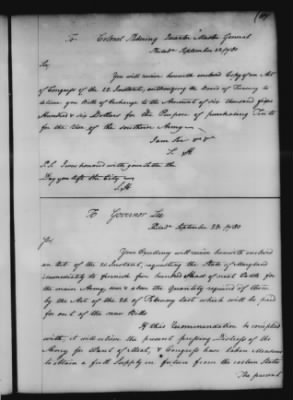 To Colonel Pickering Quarter Master General
Philadª September 23. 1780
Sir,
You will receive herewith enclosed Copy of an Act
of Congress of the 22 Instant, authorizing the Board of Treasury to
deliver you Bills of Exchange to the Amount of six thousand five
Hundred & six Dollars for the Purpose of purchasing Tents
for the Use of the southern Army
I am Sir &c &c
S. H
P.S. I was honored with your Letter the
Day you left the City
S.H
To Governor Lee
Philadª September 23. 1780
Sir,
Your Excellency will receive herewith enclosed
an Act of the Instant, requesting the State of Maryland
immediately to furnish five hundred Head of neat Cattle for
the main Army, over & above the Quantity required of them
by the Act of the 25 of February last which will be paid
for out of the new Bills
If this Recommendation be complied
with, it will relieve the present pressing Distress of the
Army for Want of Meat, & Congress have taken Measures
to obtain a full Supply in future from the eastern States
The present